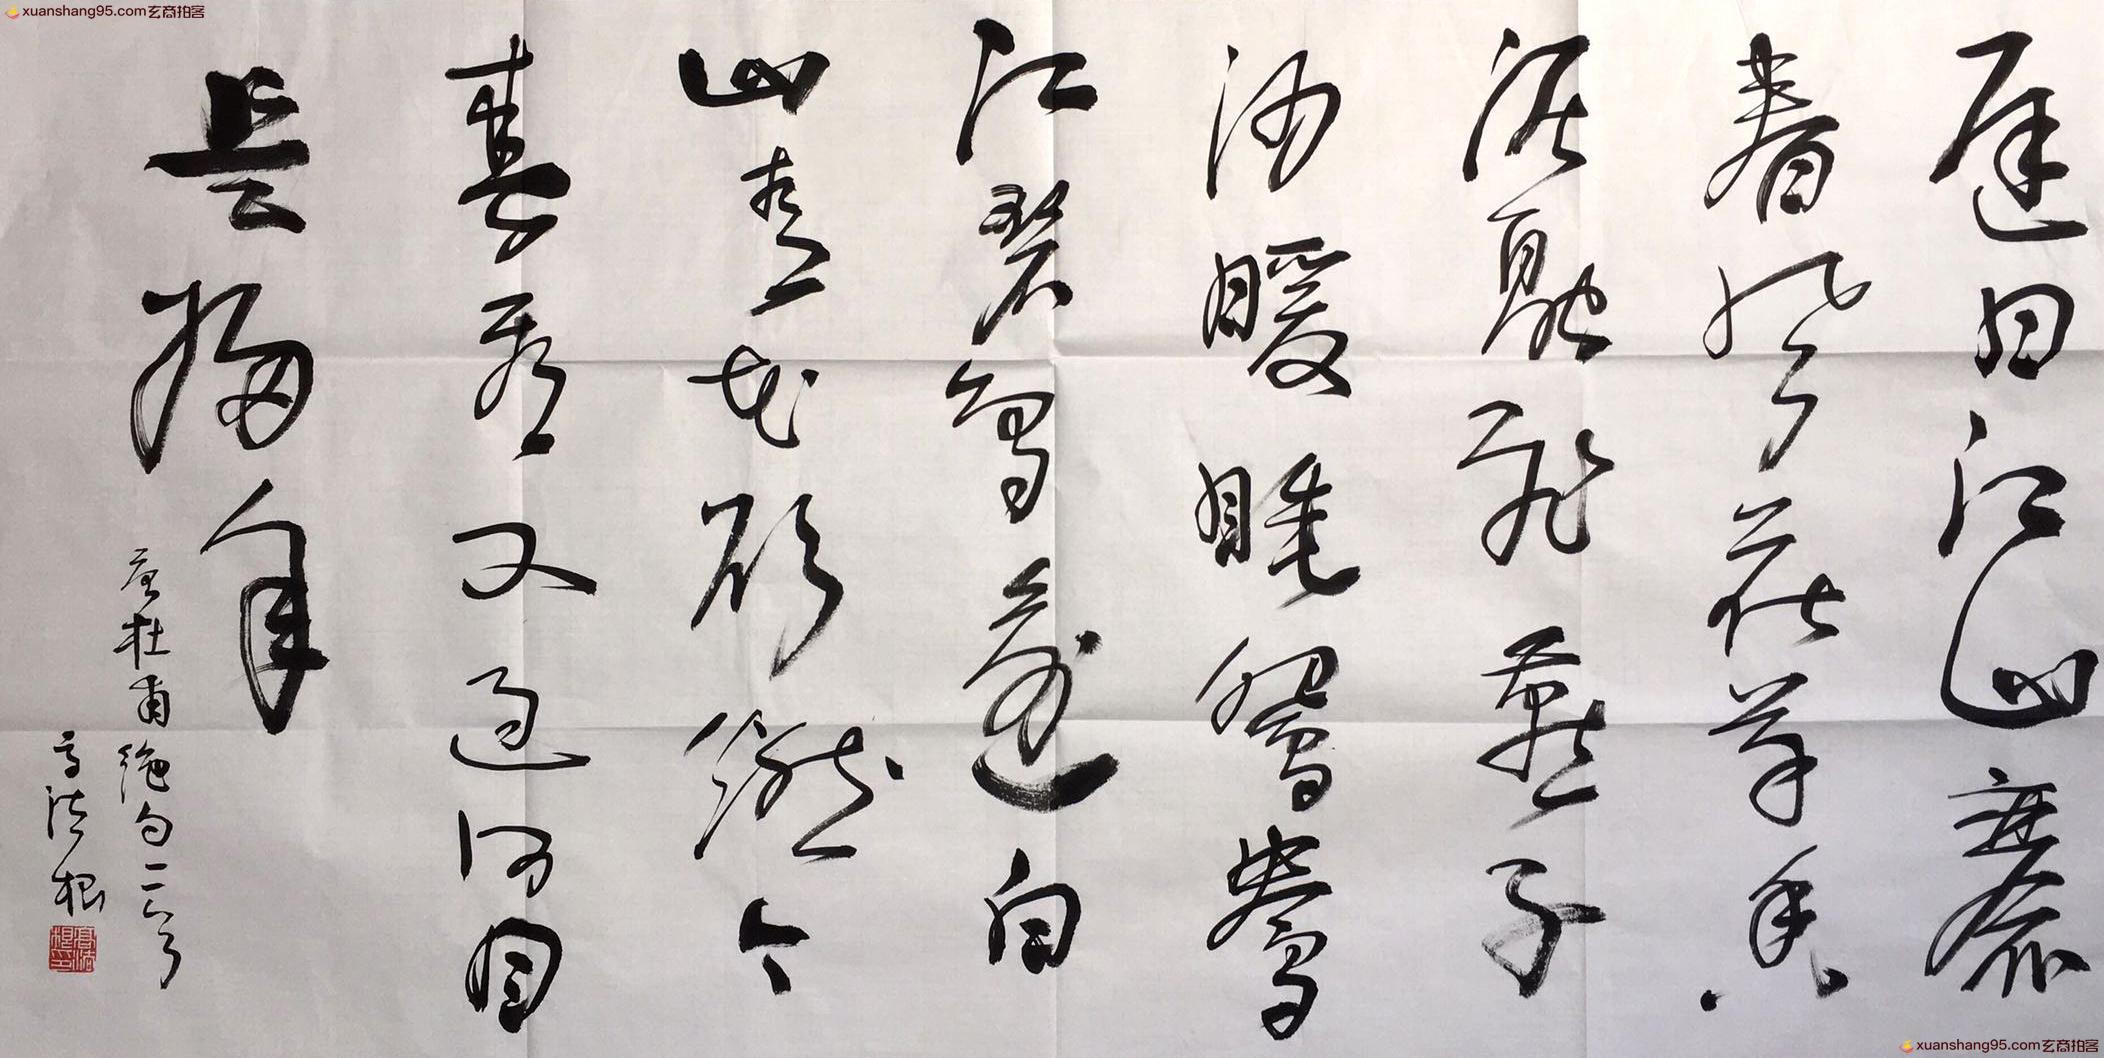 xuanshang95.com玄商拍客
遅日江山麗
春风花草香
泥融飛燕子
沙暖睡鴛鴦
江碧鳥逾白
山青花欲燃今
春看又過何日
是歸年
唐杜甫绝句二首
高法根
高法根印
xuanshang95.com玄商拍客